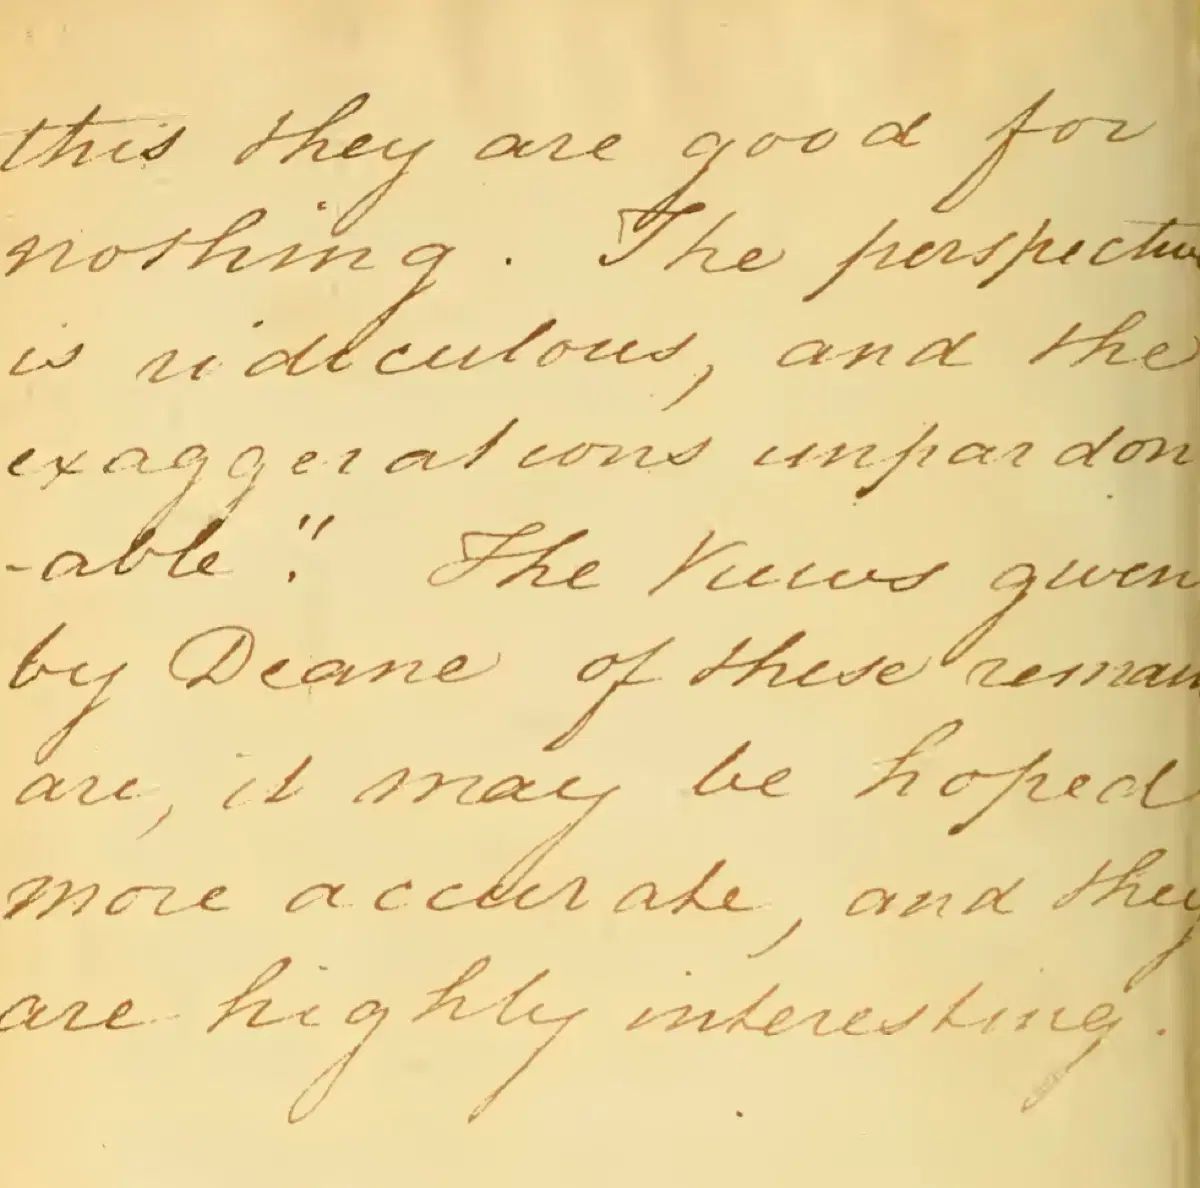 this they are good for
nothing. The perspective
is ridiculous, and the
exaggerations unpardon
-able." The Views given
by Deane of these remains
are, it may be hoped
more accurate, and they
are highly interesting.